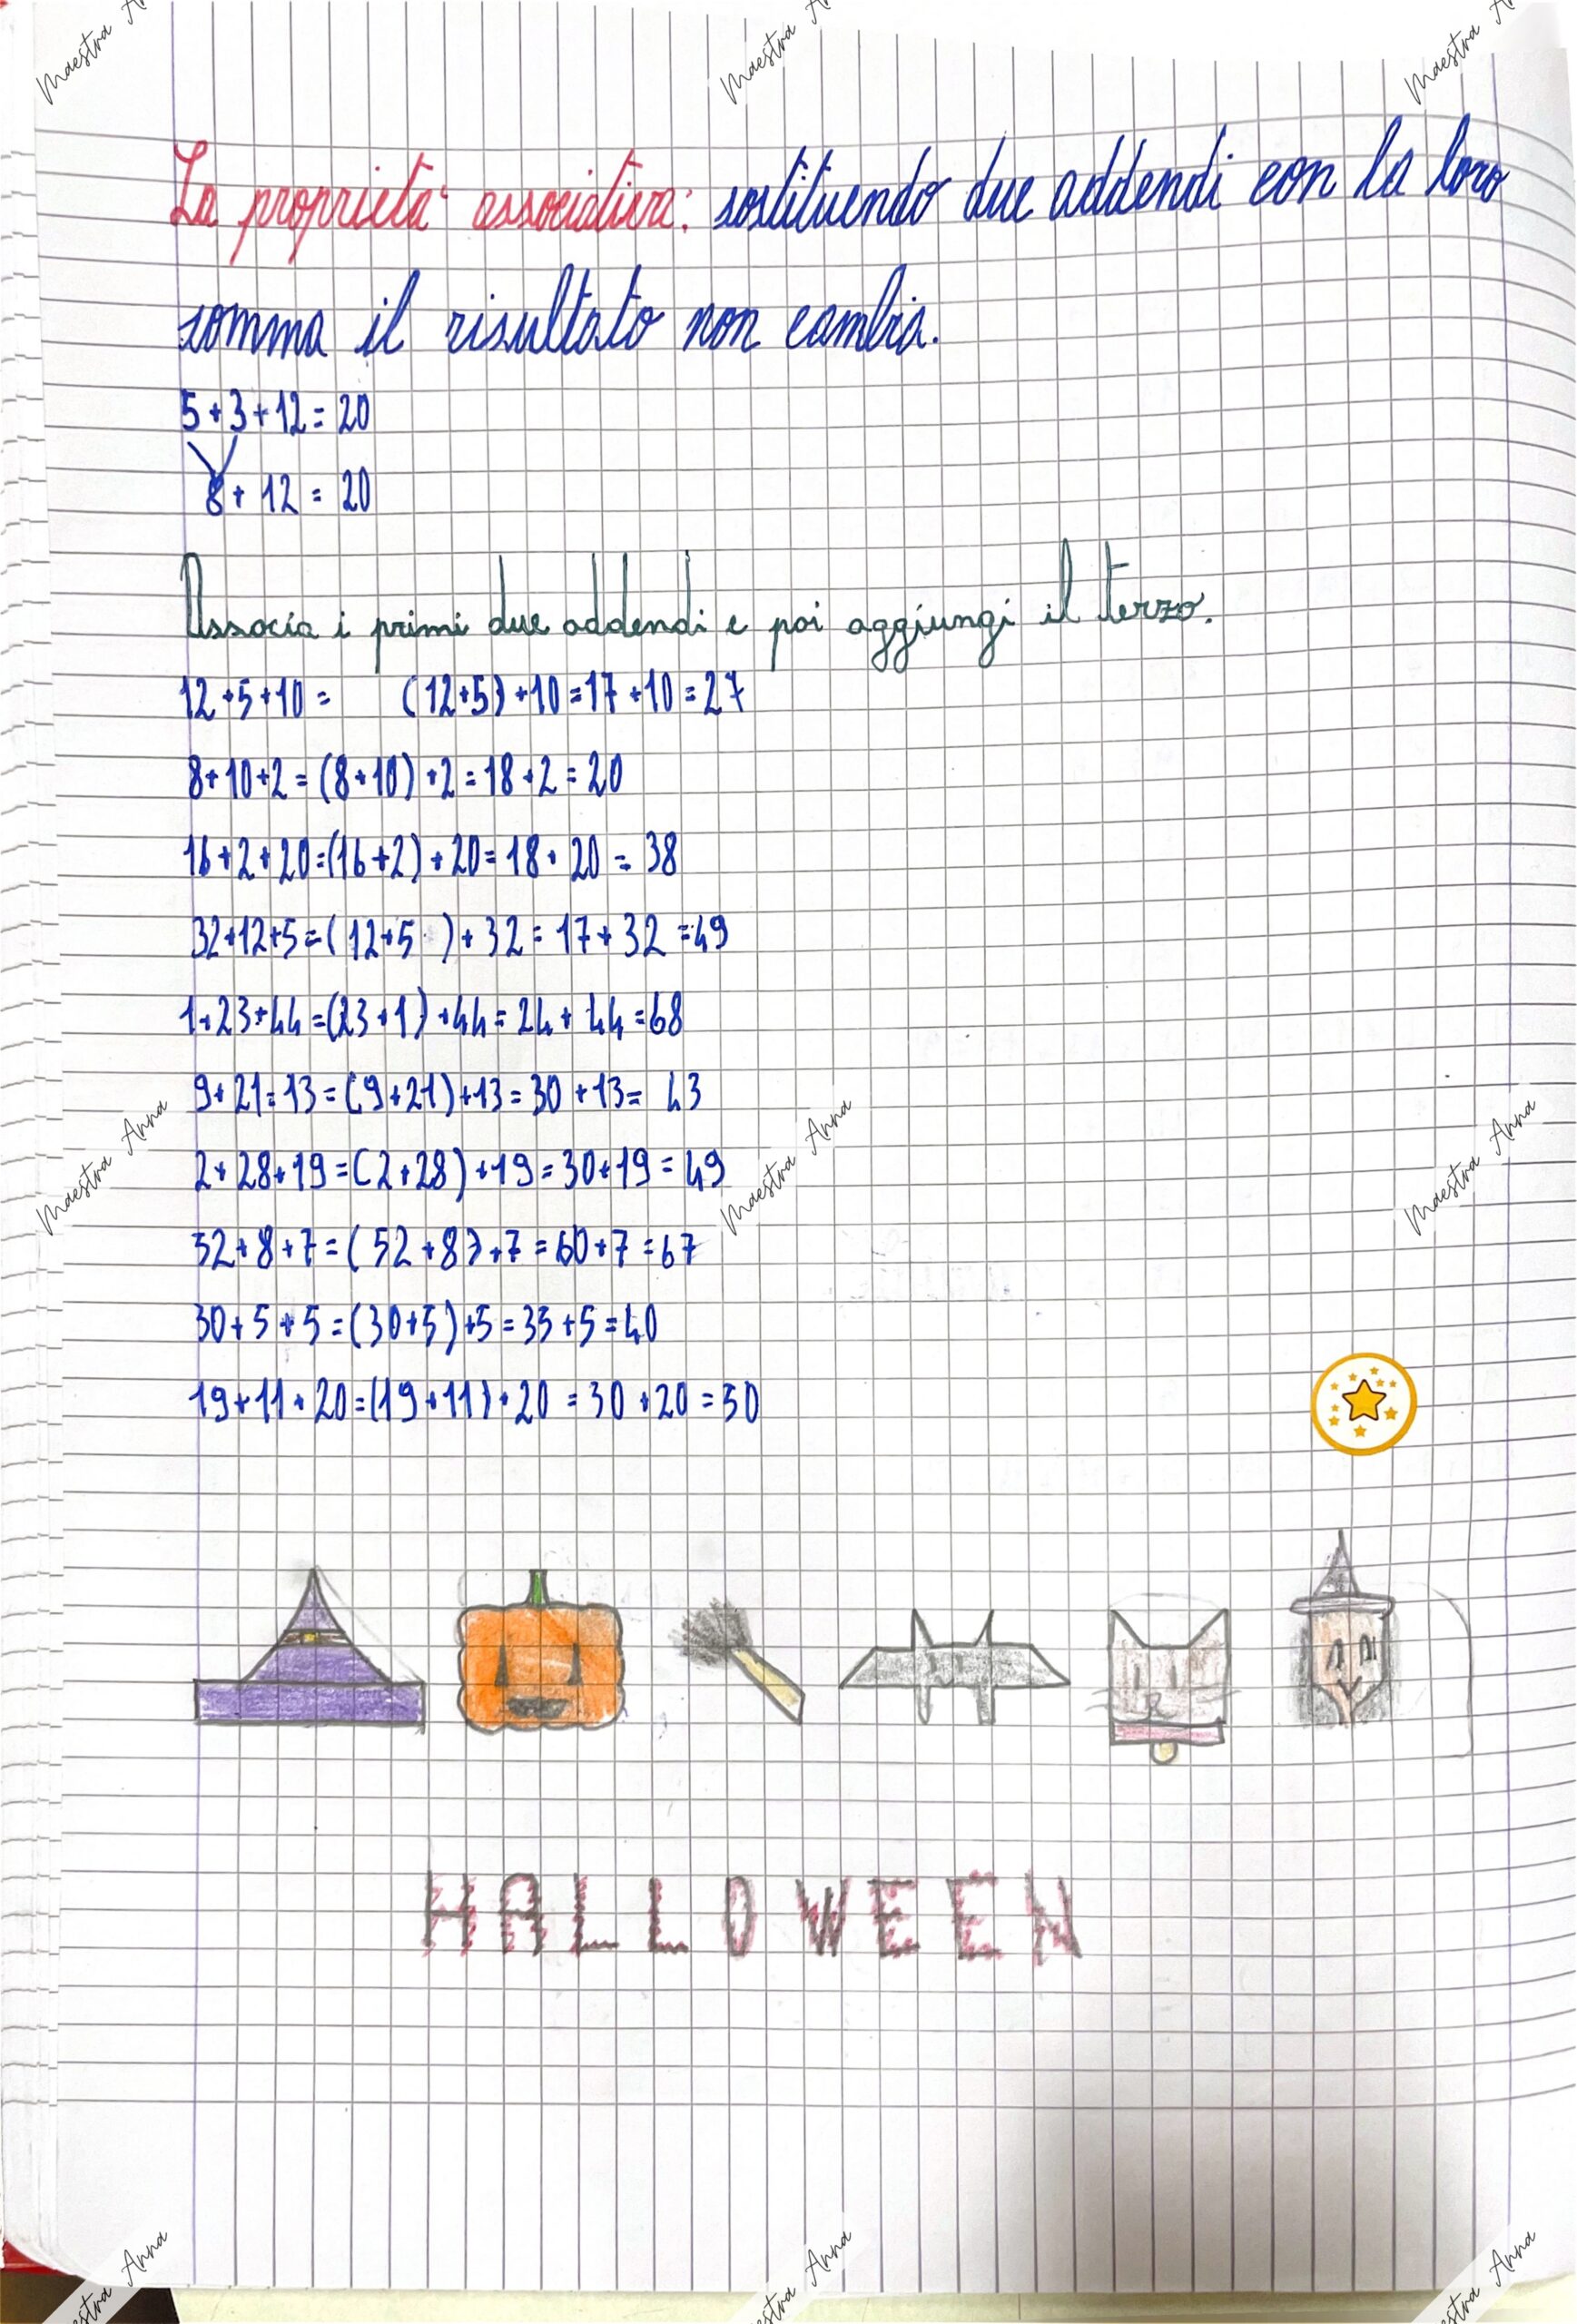 La proprietà associativa: sostituendo due addendi con la loro
somma il risultato non cambia.
5+3+12=20
8+12=20
Associa i primi due addendi e poi aggiungi il terzo.
12+5+10= (12+5)+10=17+10=27
8+10+2=(8+10)+2=18+2=20
16+2+20=(16+2)+20=18+20=38
32+12+5=(12+5)+32=17+32=49
1+23+44=(23+1)+44=24+44=68
9+21=13=(9+21)+13=30+13=43
2+28+19=(2+28)+19=30+19=49
52+8+7=(52+8)+7=60+7=67
30+5+5=(30+5)+5=35+5=40
19+11+20=(19+11)+20=30+20=50
HALLOWEEN
Maestra Anna
Maestra Anna
Maestra Anna